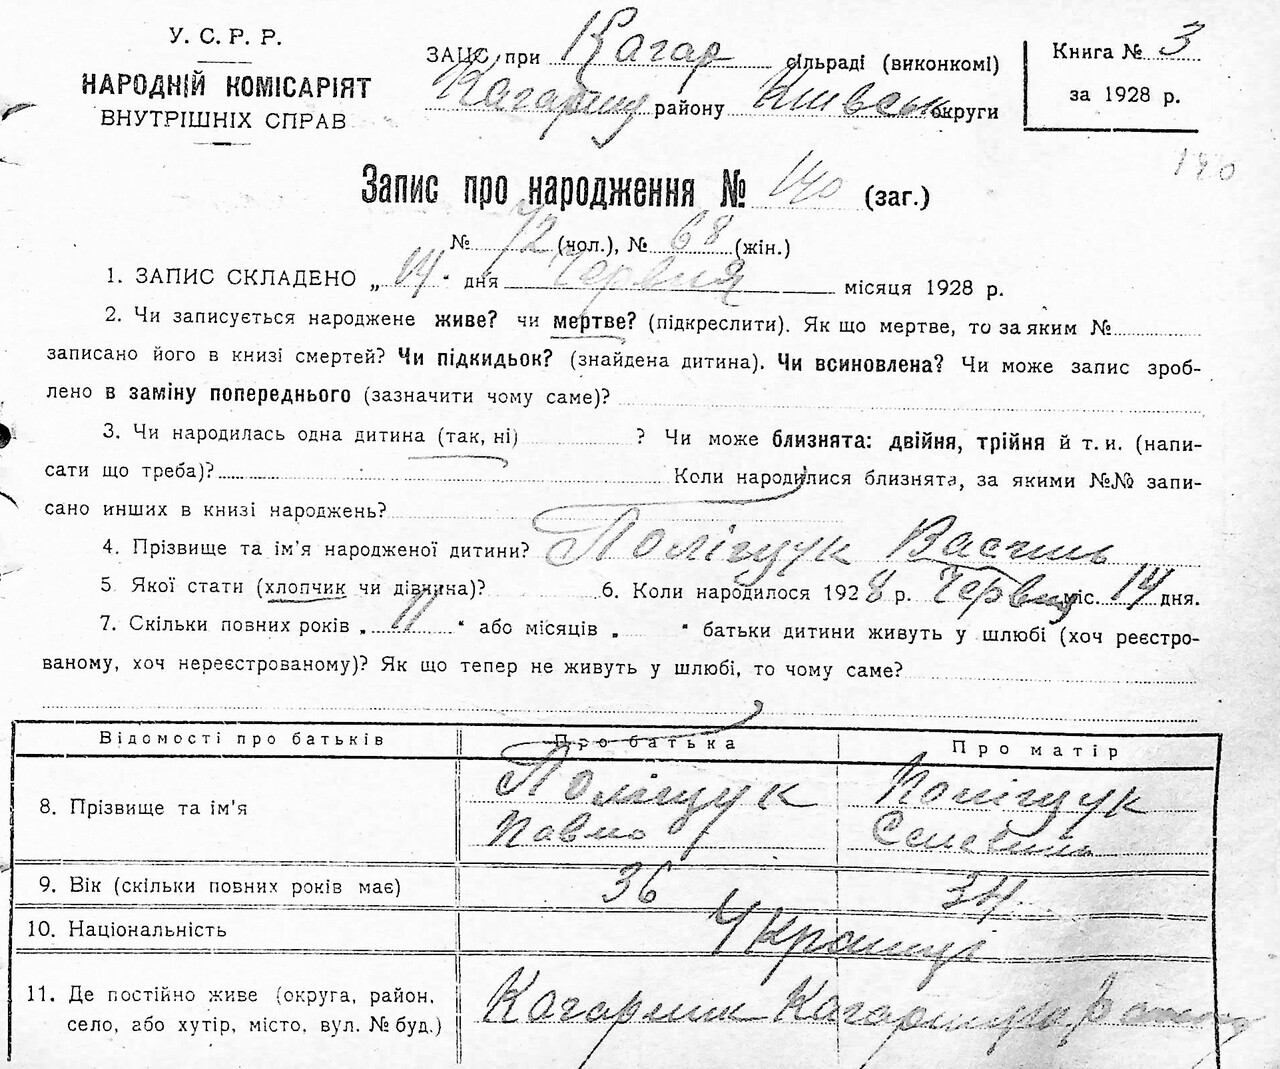 У. С. Р. Р.
НАРОДНІЙ КОМІСАРІЯТ
ВНУТРІШНІХ СПРАВ
ЗАЦС при Кагар сільраді (виконкомі)
району Київськ округи
Книга № 3
за 1928 р.
140
Запис про народження № 140 (заг.)
№ 72 (чол.), № 68 (жін.)
1. ЗАПИС СКЛАДЕНО „ 14 " дня Червня місяця 1928 р.
2. Чи записується народжене живе? чи мертве? (підкреслити). Як що мертве, то за яким №
записано його в книзі смертей? Чи підкидьок? (знайдена дитина). Чи всиновлена? Чи може запис зроб-
лено в заміну попереднього (зазначити чому саме)?
3. Чи народилась одна дитина (так, ні) ? Чи може близнята: двійня, трійня й т. и. (напи-
сати що треба)? Коли народилися близнята, за якими №№ запи-
сано инших в книзі народжень?
4. Прізвище та ім'я народженої дитини? Поліщук Василь
5. Якої стати (хлопчик чи дівчина)? 6. Коли народилося 1928 р. Червня міс. 14 дня.
7. Скільки повних років „ 11 " або місяців „ " батьки дитини живуть у шлюбі (хоч реєстро-
ваному, хоч нереєстрованому)? Як що тепер не живуть у шлюбі, то чому саме?
Відомості про батьків Про батька Про матір
8. Прізвище та ім'я Поліщук Поліщук
Павло
9. Вік (скільки повних років має) 36 34
10. Національність Українці
11. Де постійно живе (округа, район,
село, або хутір, місто, вул. № буд.) Кагарлик